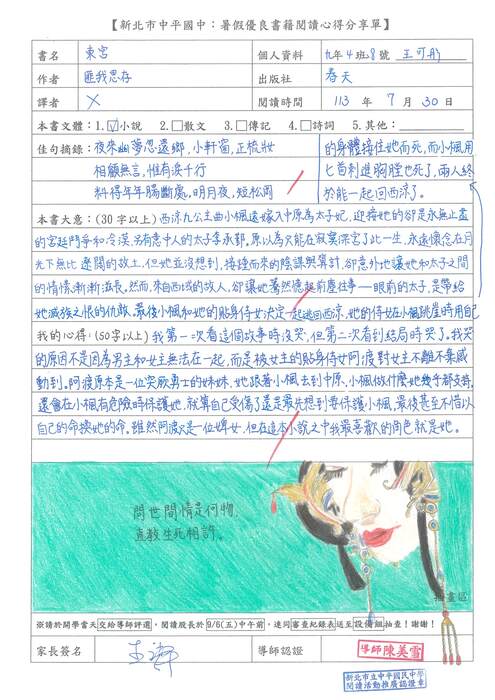 【新北市中平國中：暑假優良書籍閱讀心得分享單】
書名 東宮 個人資料 九年4班8號 王可彤
作者 匪我思存 出版社 春天
譯者 X 閱讀時間 113年7月30日
本書文體：1.☑小說 2.□散文 3.□傳記 4.□詩詞 5.其他：
佳句摘錄：夜來幽夢忽還鄉，小軒窗，正梳妝
相顧無言，惟有淚千行
料得年年腸斷處，明月夜，短松岡
的身體接住她而死，而小楓用
匕首刺進胸膛也死了，兩人終
於能一起回西涼了。
本書大意：(30字以上)西涼九公主曲小楓遠嫁入中原為太子妃，迎接她的卻是永無止盡
的宮廷鬥爭和冷漠、另有意中人的太子李承鄞。原以為只能在寂寞深宮了此一生，永遠懷念在月
光下無比遼闊的故土，但她並沒想到，接踵而來的陰謀與算計，卻意外地讓她和太子之間
的情愫漸漸滋長。然而，來自西域的故人，卻讓她驀然憶起前塵往事——眼前的太子，是帶給
她滅族之恨的仇敵。最後小楓和她的貼身侍女決定一起逃回西涼，她的侍女在小楓跳崖時用自己
我的心得：(50字以上)我第一次看這個故事時沒哭，但第二次看到結局時哭了。我哭
的原因不是因為男主和女主無法在一起，而是被女主的貼身侍女阿渡對女主不離不棄感
動到。阿渡原本是一位突厥勇士的妹妹，她跟著小楓去到中原、小楓做什麼她幾乎都支持，
還會在小楓有危險時保護她，就算自己受傷了還是最先想到要保護小楓，最後甚至不惜以
自己的命換她的命。雖然阿渡只是一位婢女，但在這本小說之中我最喜歡的角色就是她。
問世間情是何物，
直教生死相許。
插畫區
※請於開學當天交給導師評選，閱讀股長於9/6(五)中午前，連同審查紀錄表送至設備組抽查！謝謝！
家長簽名 導師認證 導師陳美雪
新北市立中平國民中學
閱讀活動推廣認證章